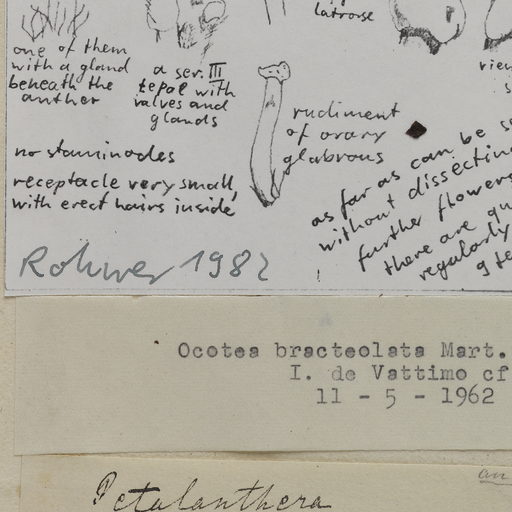 latrorse
one of them
with a gland
beneath the
anther
a ser. III
tepal with
valves and
glands
rudiment
of ovary
glabrous
no staminodes
receptacle very small,
with erect hairs inside
as far as can be
without dissecting
further flowers
there are
regularly
Rohwer 1982
Ocotea bracteolata Mart.
I. de Vattimo cf
11 - 5 - 1962
Petalanthera